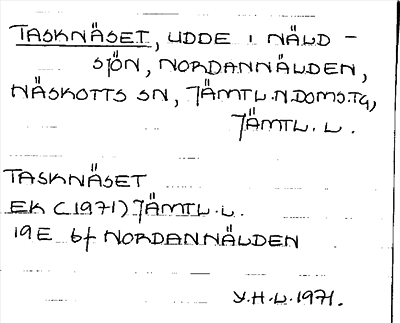 TASKNÄSET, UDDE I NÄLD-
SJÖN, NORDANNÄLDEN,
NÄSKOTTS SN, JÄMTL.N.DOMS.TG,
JÄMTL. L.
TASKNÄSET
EK (1971) JÄMTL.L.
19E 6f NORDANNÄLDEN
Y.H.L.1971.